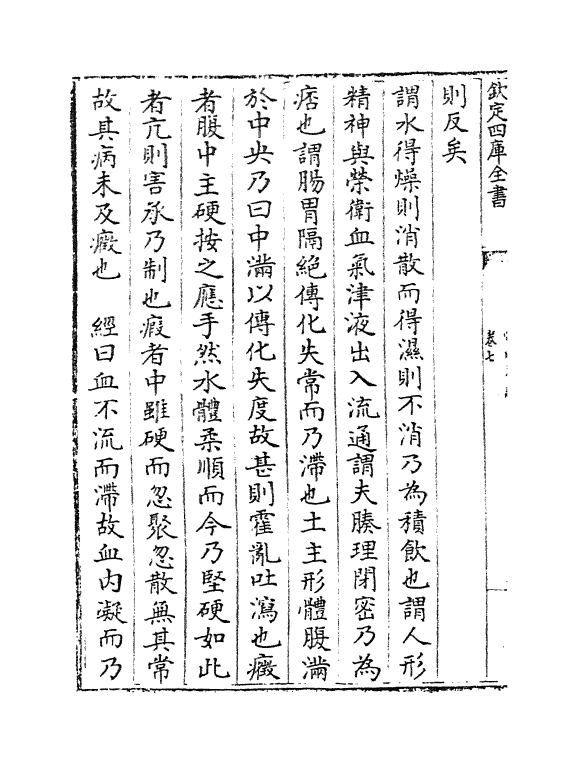 欽定四庫全書
卷七
則反矣
謂水得燥則消散而得濕則不消乃為積飲也謂人形
精神與榮衛血氣津液出入流通謂夫腠理閉密乃為
痞也謂腸胃隔絶傳化失常而乃滯也土主形體腹滿
於中央乃曰中滿以傳化失度故甚則霍亂吐瀉也癥
者腹中主硬按之應手然水體柔順而今乃堅硬如此
者亢則害承乃制也瘕者中雖硬而忽聚忽散無其常
故其病未及癥也　經曰血不流而滯故血内凝而乃